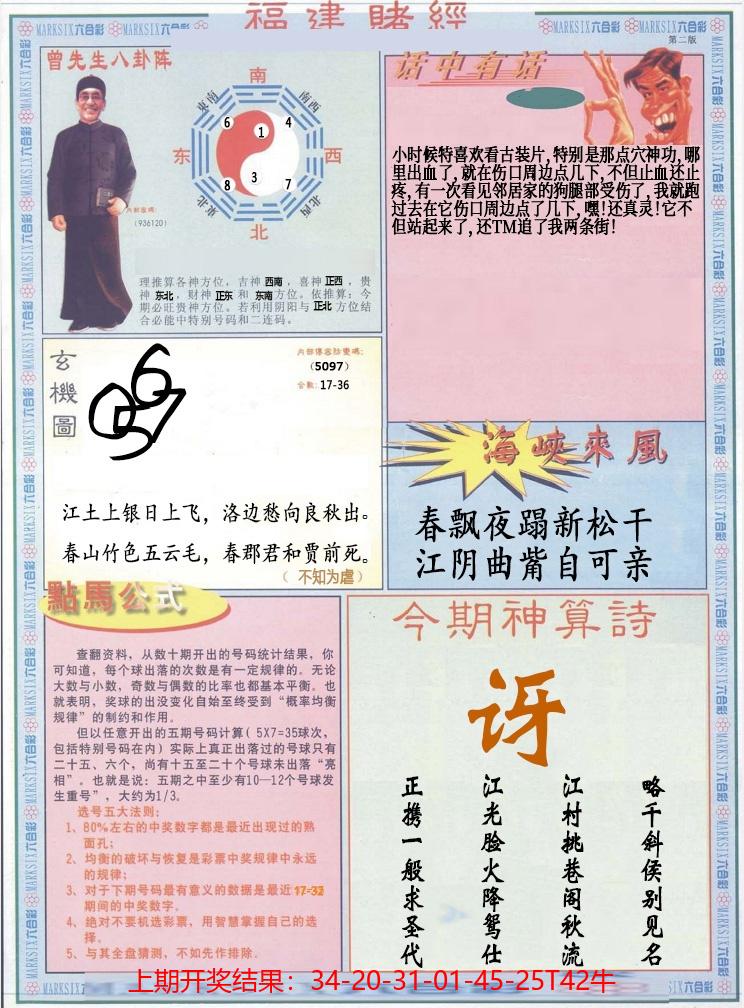 福建賭經
MARKSIX六合彩
第二版
曾先生八卦阵
南
东南
南西
6
1
4
东
西
8
3
7
东北
北西
北
(936120)
理推算各神方位，吉神 西南，喜神 正西，贵
神 东北，财神 正东 和 东南方位。依推算：今
期必旺贵神方位。若利用阴阳与 正北 方位结
合必能中特别号码和二连码。
话中有话
小时候特喜欢看古装片,特别是那点穴神功,哪
里出血了,就在伤口周边点几下,不但止血还止
疼,有一次看见邻居家的狗腿部受伤了,我就跑
过去在它伤口周边点了几下,嘿!还真灵!它不
但站起来了,还TM追了我两条街!
玄
機
圖
(5097)
合数: 17-36
江土上银日上飞，洛边愁向良秋出。
春山竹色五云毛，春郡君和贾前死。
（ 不知为虐）
海峽來風
春飘夜蹋新松干
江阴曲觜自可亲
點馬公式
查翻资料，从数十期开出的号码统计结果，你
可知道，每个球出落的次数是有一定规律的。无论
大数与小数，奇数与偶数的比率也都基本平衡。也
就表明，奖球的出没变化自始至终受到“概率均衡
规律”的制约和作用。
但以任意开出的五期号码计算( 5X7=35球次，
包括特别号码在内) 实际上真正出落过的号球只有
二十五、六个，尚有十五至二十个号球未出落“亮
相”。也就是说：五期之中至少有10—12个号球发
生重号”，大约为1/3。
选号五大法则：
1、80%左右的中奖数字都是最近出现过的熟
面孔；
2、均衡的破坏与恢复是彩票中奖规律中永远
的规律；
3、对于下期号码最有意义的数据是最近 17-32
期间的中奖数字。
4、绝对不要机选彩票，用智慧掌握自己的选
择。
5、与其全盘猜测，不如先作排除．
今期神算詩
讶
略千斜侯别见名
江村挑巷阁秋流
江光脸火降鸳仕
正携一般求圣代
上期开奖结果：34-20-31-01-45-25T42牛